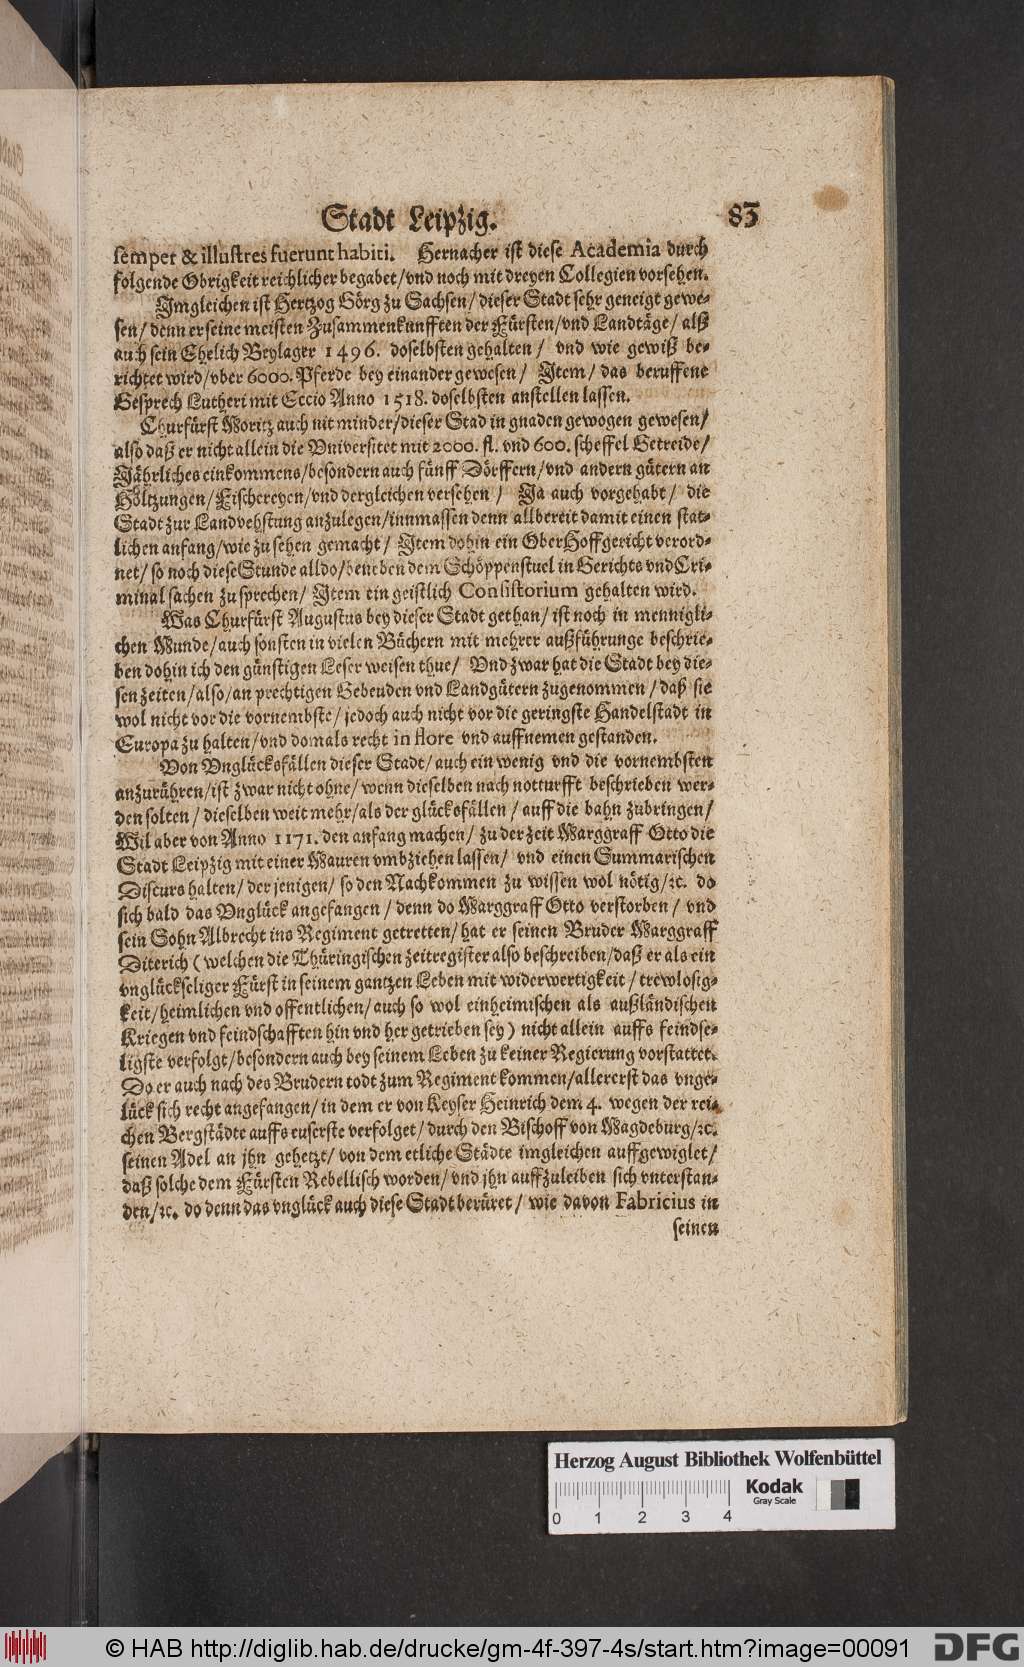 Stadt Leipzig. 83
semper & illustres fuerunt habiti. Hernacher ist diese Academia durch
folgende Obrigkeit reichlicher begabet/vnd noch mit dreyen Collegien vorsehen.
Imgleichen ist Hertzog Görg zu Sachsen/dieser Stadt sehr geneigt gewe-
sen/denn er seine meisten Zusammenkunfften der Fürsten/vnd Landtäge/alß
auch sein Ehelich Beylager 1496. doselbsten gehalten/ vnd wie gewiß be-
richtet wird/vber 6000. Pferde bey einander gewesen/ Item/das beruffene
Gesprech Lutheri mit Eccio Anno 1518. doselbsten anstellen lassen.
Churfürst Moritz auch nit minder/dieser Stad in gnaden gewogen gewesen/
also daß er nicht allein die Vniversitet mit 2000. fl. vnd 600. scheffel Getreide/
Jährliches einkommens/besondern auch fünff Dörffern/vnd andern gütern an
Höltzungen/Fischereyen/vnd dergleichen versehen/ Ja auch vorgehabt/ die
Stadt zur Landvehstung anzulegen/innmassen denn allbereit damit einen stat-
lichen anfang/wie zu sehen gemacht/ Item dohin ein OberHoffgericht verord-
net/so noch diese Stunde alldo/beneben dem Schöppenstuel in Gerichts vnd Cri-
minal sachen zu sprechen/ Item ein geistlich Consistorium gehalten wird.
Was Churfürst Augustus bey dieser Stadt gethan/ist noch in mennigli-
chen Munde/auch sonsten in vielen Büchern mit mehrer außführunge beschrie-
ben dohin ich den günstigen Leser weisen thue/ Vnd zwar hat die Stadt bey die-
sen zeiten/also/an prechtigen Gebeuden vnd Landgütern zugenommen/daß sie
wol nicht vor die vornembste/jedoch auch nicht vor die geringste Handelstadt in
Europa zu halten/vnd domals recht in flore vnd auffnemen gestanden.
Von Vnglücksfällen dieser Stadt/auch ein wenig vnd die vornembsten
anzurühren/ist zwar nicht ohne/wenn dieselben nach notturfft beschrieben wer-
den solten/dieselben weit mehr/als der glücksfällen/auff die bahn zubringen/
Wil aber von Anno 1171. den anfang machen/ zu der zeit Marggraff Otto die
Stadt Leipzig mit einer Mauren vmbziehen lassen/ vnd einen Summarischen
Discurs halten/der jenigen/so den Nachkommen zu wissen wol nötig/ꝛc. do
sich bald das Vnglück angefangen/denn do Marggraff Otto verstorben/vnd
sein Sohn Albrecht ins Regiment getretten/hat er seinen Bruder Marggraff
Diterich (welchen die Thüringischen zeitregister also beschreiben/daß er als ein
vnglückseliger Fürst in seinem gantzen Leben mit widerwertigkeit/trewlosig-
keit/heimlichen vnd offentlichen/auch so wol einheimischen als außländischen
Kriegen vnd feindschafften hin vnd her getrieben sey) nicht allein auffs feindse-
ligste verfolgt/besondern auch bey seinem Leben zu keiner Regierung vorstattet.
Do er auch nach des Brudern todt zum Regiment kommen/allererst das vnge-
lück sich recht angefangen/in dem er von Keyser Heinrich dem 4. wegen der rei-
chen Bergstädte auffs euserste verfolget/durch den Bischoff von Magdeburg/ꝛc.
seinen Adel an jhn gehetzt/von dem etliche Städte imgleichen auffgewiglet/
daß solche dem Fürsten Rebellisch worden/vnd jhn auffzuleiben sich vnterstan-
den/ꝛc. do denn das vnglück auch diese Stadt berüret/ wie davon Fabricius in
seinen
Herzog August Bibliothek Wolfenbüttel
Kodak
Gray Scale
0 1 2 3 4
© HAB http://diglib.hab.de/drucke/gm-4f-397-4s/start.htm?image=00091
DFG